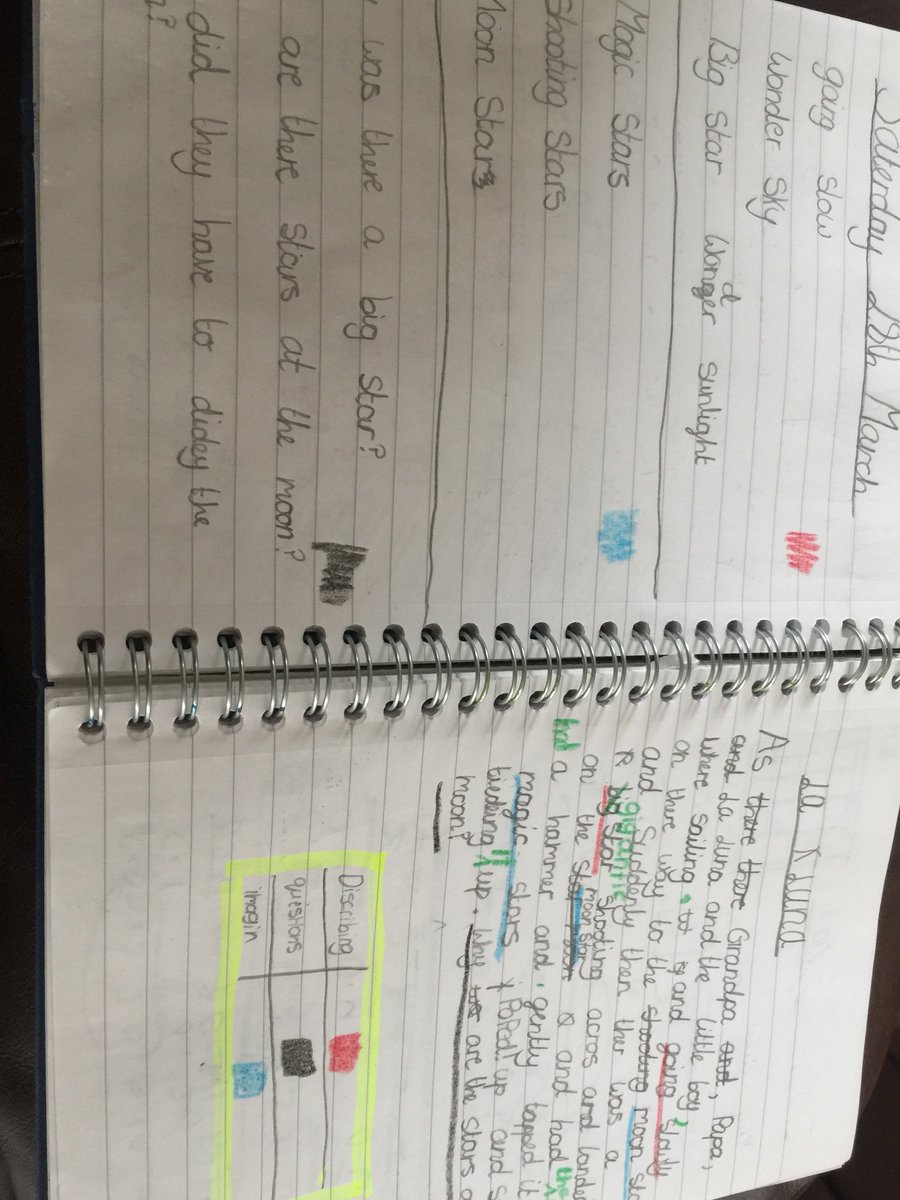 Saterday 18th March
going slow
Wonder Sky
Big Star Wonder sunlight
d
Magic Stars
Shooting Stars
Moon Stars
was there a big star?
are there stars at the moon?
did they have to didey the
?
La Luna
As there there Grandpa and, Papa,
and La Luna and the little boy?
where sailing. and going slowly
on there way to the shooting moon sta
and Suddenly then ther was a
big star gigantic
on the moon stars shooting acros and lande
had a hammer and had the
and gently tapped it
magic stars PoPed! up and s
tieding it up. Why are the stars a
moon?
Discribing
questions
imagin